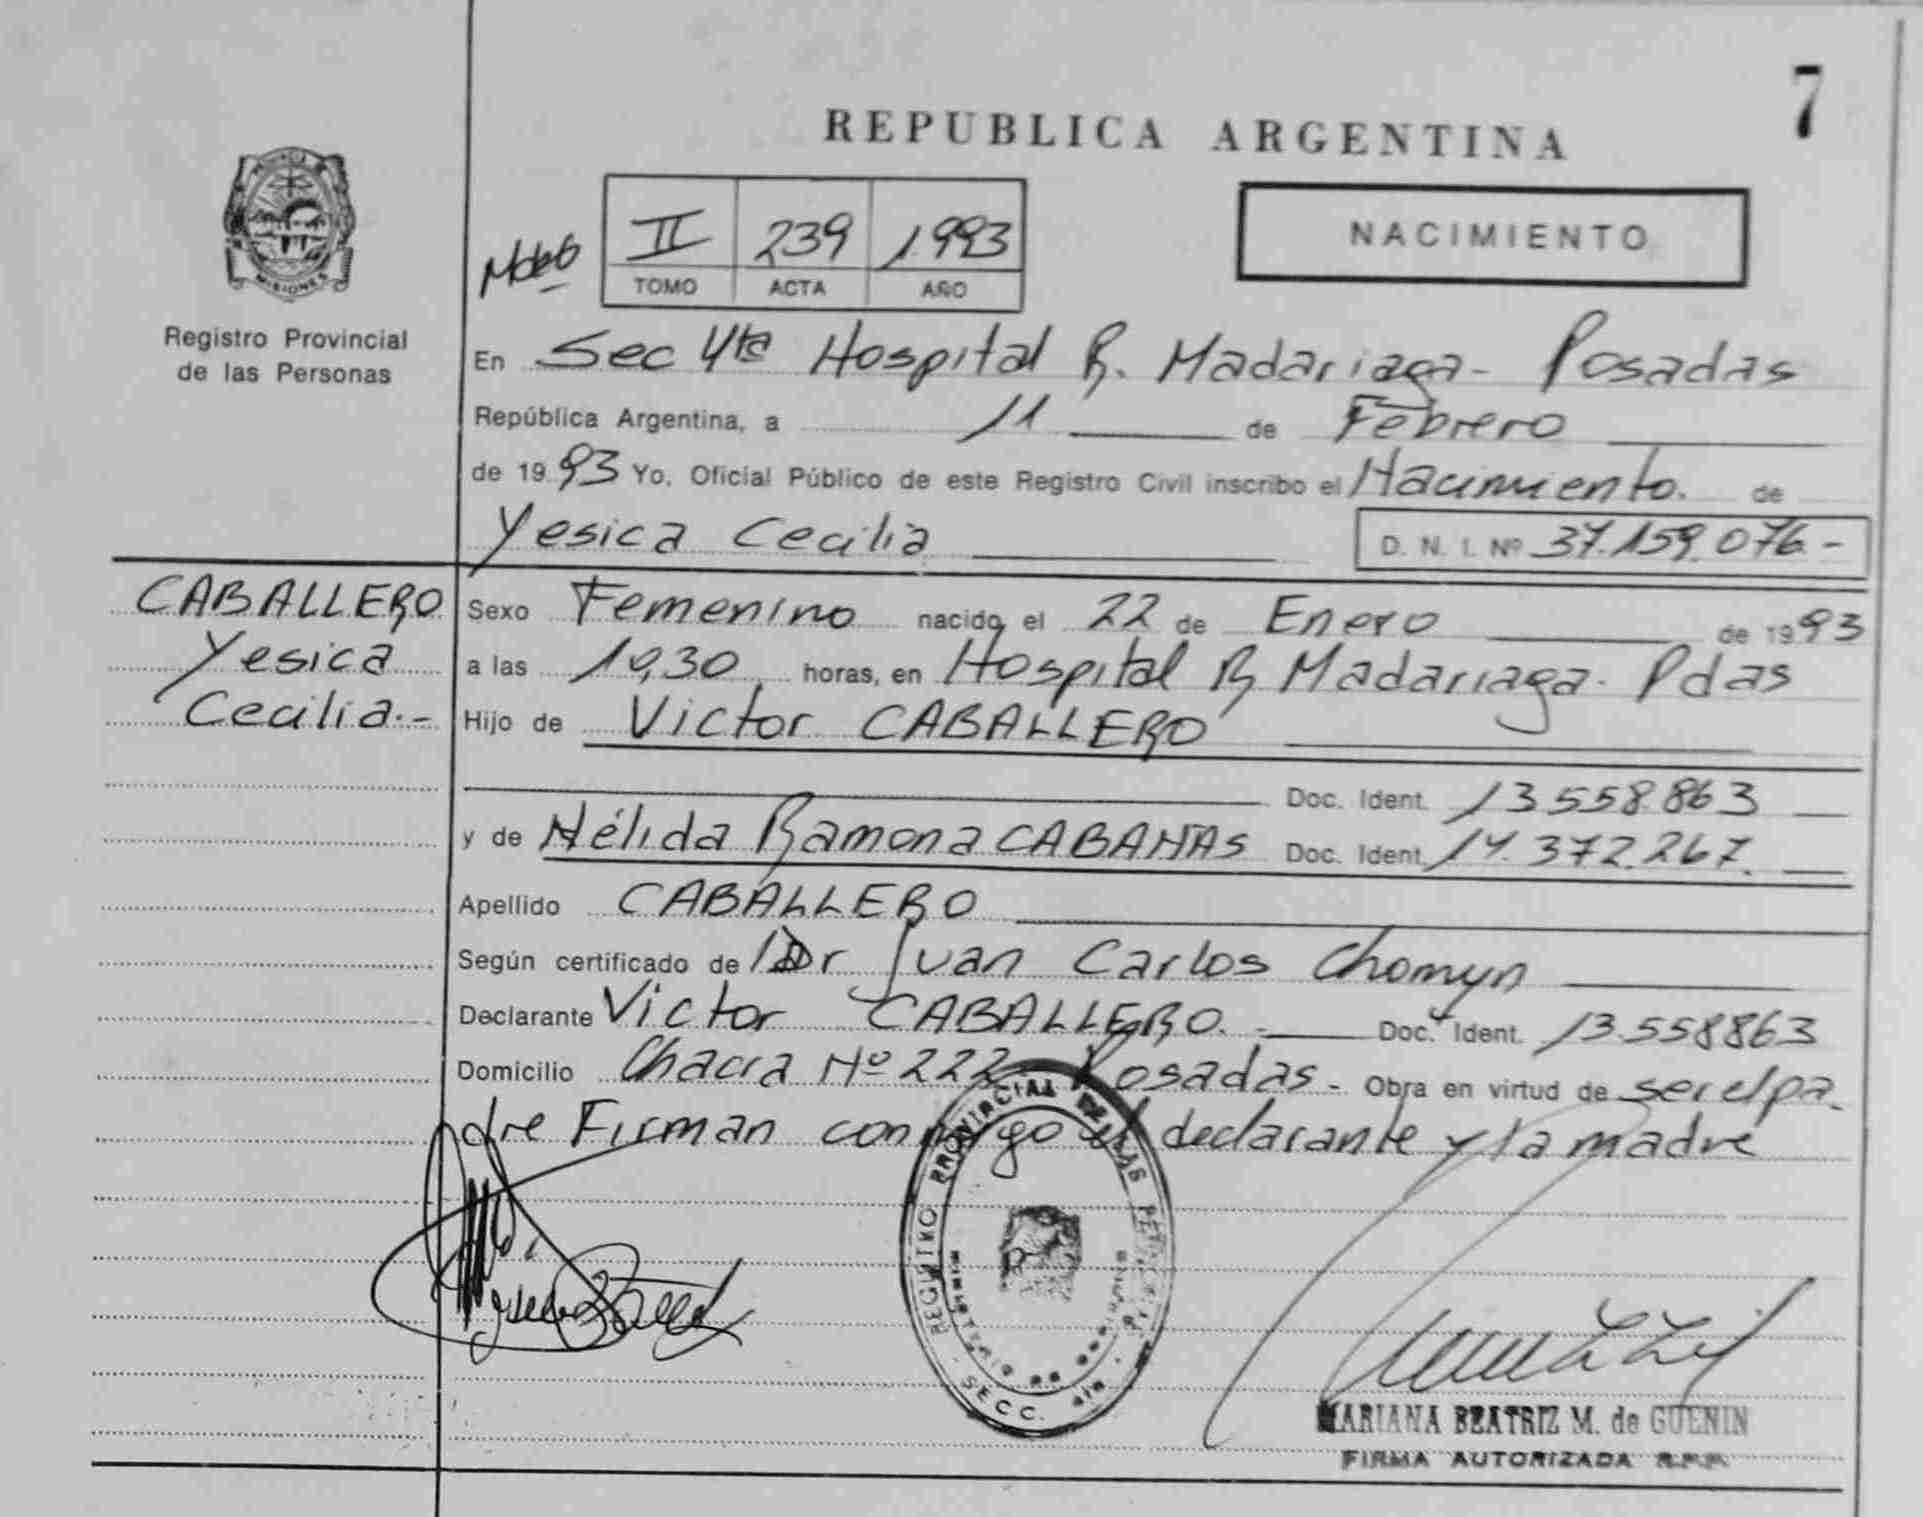 7
REPUBLICA ARGENTINA
NACIMIENTO
II 239 1.993
TOMO ACTA AÑO
MISIONES
Registro Provincial
de las Personas
En Sec 4ta Hospital R. Madariaga - Posadas
República Argentina, a 11 de Febrero
de 19 93 Yo, Oficial Público de este Registro Civil inscribo el Nacimiento. de
Yesica Cecilia D. N. I. Nº 37.159.076.-
CABALLERO
Yesica
Cecilia.-
Sexo Femenino nacido el 22 de Enero de 1993
a las 19,30 horas, en Hospital R Madariaga. Pdas
Hijo de Victor CABALLERO
Doc. Ident. 13558.863
y de Nélida Ramona CABAÑAS Doc. Ident. 14.372.267.
Apellido CABALLERO
Según certificado de Dr Juan Carlos Chomyn
Declarante Victor CABALLERO. Doc. Ident. 13.558863
Domicilio Chacra Nº 222 Posadas - Obra en virtud de ser el pa-
dre Firman conmigo el declarante y la madre
REGISTRO PROVINCIAL DE LAS
MINISTERIO DE GOBIERNO
SECC. 4ta
MARIANA BEATRIZ M. de GUENIN
FIRMA AUTORIZADA R.P.P.